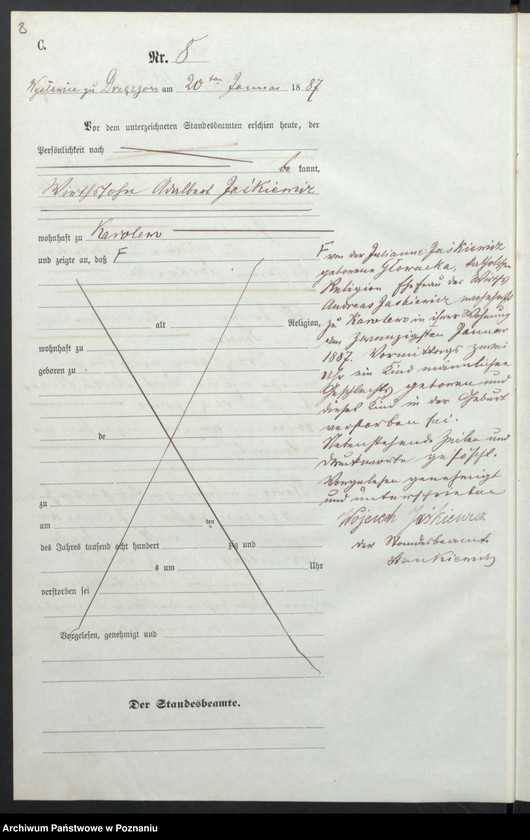 8
C.
Nr. 8
zu am 20ten Januar 1887
Vor dem unterzeichneten Standesbeamten erschien heute, der
Persönlichkeit nach
bekannt,
Wirthssohn Adalbert Jaśkiewicz
wohnhaft zu Karolewo
und zeigte an, daß F
F von der Julianna Jaśkiewicz
geborene Glowacka, katholischer
Religion Ehefrau des Wirths
Andreas Jaskiewicz wohnhaft
zu Karolewo in ihrer Wohnung
am zwanzigsten Januar
1887. Vormittags zwei
Uhr ein Kind männlichen
Geschlechts geboren und
dieses Kind in der Geburt
verstorben sei.
Nebenstehende Zeilen und
Druckworte gelöscht.
Vorgelesen genehmigt
und unterschrieben
Wojciech Jaśkiewicz
der Standesbeamte
Stankiewicz
alt Religion,
wohnhaft zu
geboren zu
de
zu
am ten
des Jahres tausend acht hundert zig und
s um Uhr
verstorben sei
Vorgelesen, genehmigt und
Der Standesbeamte.
Archiwum Państwowe w Poznaniu